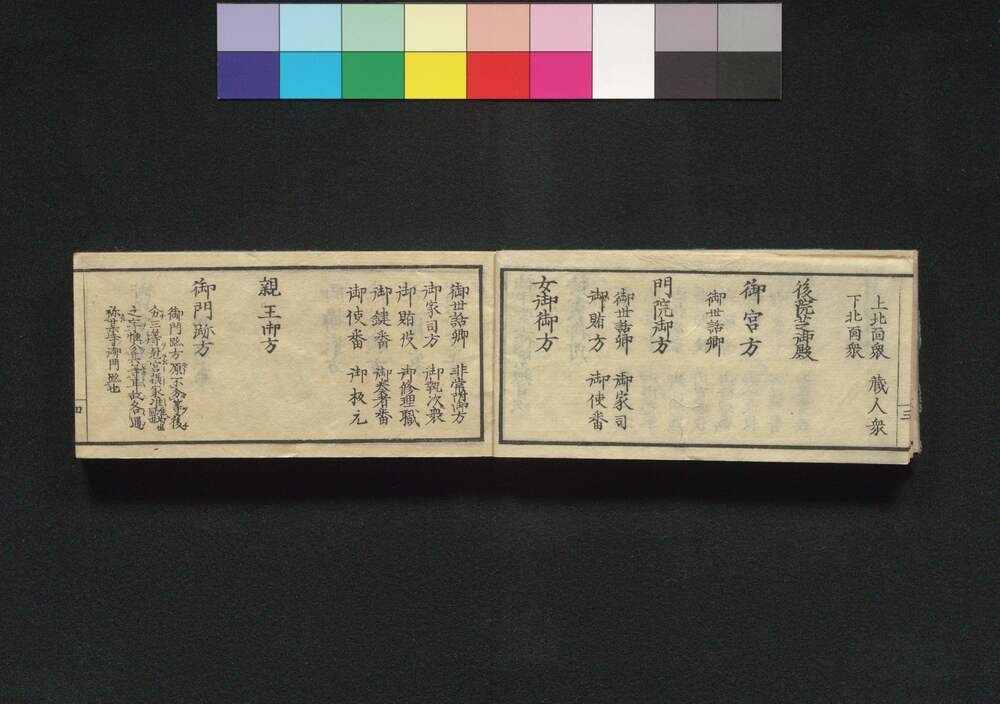 上北面衆 蔵人衆
下北面衆
後院芝御殿
御宮方
御世話卿
門院御方
御世話卿 御家司
御賄方 御使番
女御御方
御世話卿 非常附御方
御家司方 御執次衆
御賄役 御修理職
御鍵番 御奏者番
御使番 御板元
親王御方
御門跡方
御門跡方原不分等後
分三等
称某寺御門跡也
三
四